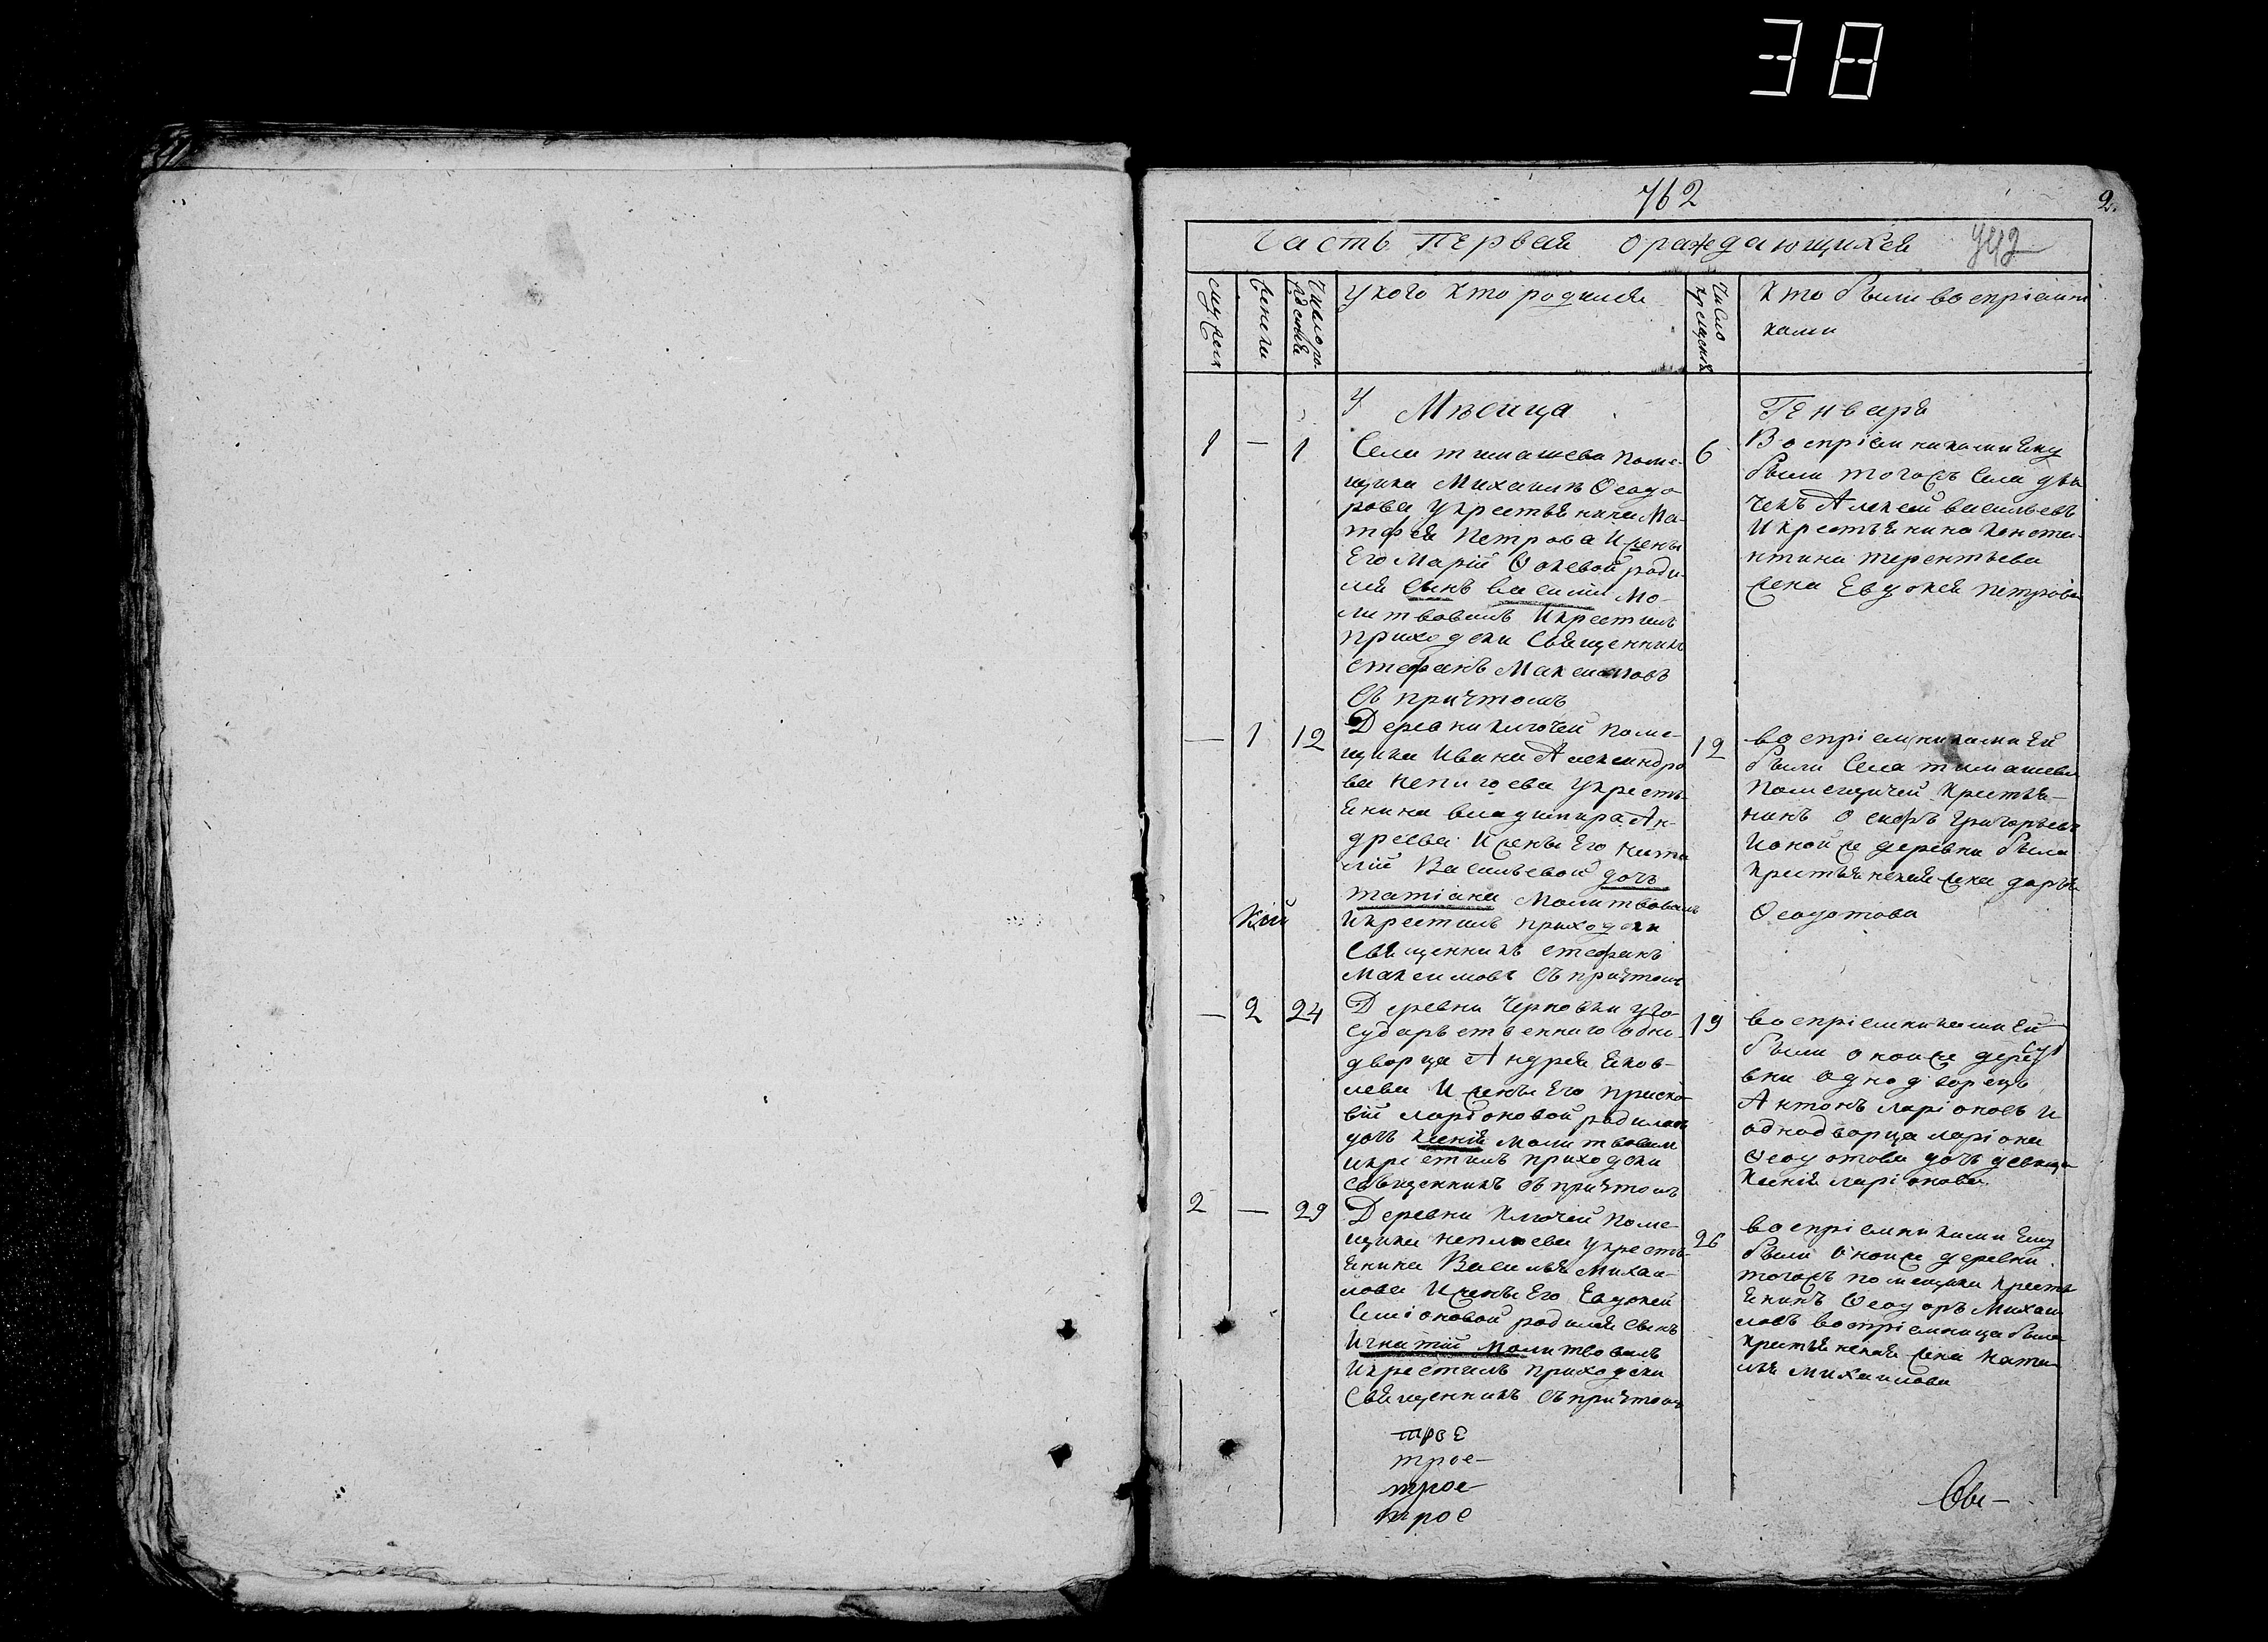 38
762
2.
Часть первая о раждающихся
742
мужеска
женска
Число ро-
жденія
у кого кто родился
Число
крещенія
кто были воспріемни
ками
Мѣсяца
Генваря
1 — 1
Села тимашева поме-
щика Михаилъ Ѳеодо
рова укрестьянина Ма-
тфея Петрова Ижены
Его Маріи Ѳокевой роди-
лся сынъ василій Мо-
литвовалъ Икрестилъ
приходски Священникъ
стефанъ Максимовъ
Съ причтомъ
6
Воспріемниками Ему
были тогожъ села дья
чекъ Алексей васильевъ
Икрестьянина Конста-
нтина терентьева
жена Евдокея петрова
— 1 12
Деревни ключей поме-
щика Ивана Александро
ва неплюева укресть-
янина владимира Ан-
древа Ижены Его ната
лии Васильевой дочь
татіана Молитвовалъ
Икрестилъ приходски
Священникъ стефанъ
Максимовъ Съ причтомъ
кій
12
воспріемниками Ей
были Села тимашева
помещичей крестья-
нинъ осифъ григорьевъ
Ионой же деревни была
крестьянская жена дарья
Ѳеодотова
— 2 24
Деревни Черновки уго-
сударственнаго одно-
дворца Андрея яков-
лева Ижены Его праско-
віи ларіоновой родилась
дочь ксенія молитвовал
икрестилъ приходски
священникъ съ причтомъ
19
воспріемниками Ей
были оноиже дере
вни однодворецъ
Антонъ ларіоновъ и
однодворца ларіона
Ѳеодотова дочь девица
ксенія ларіонова
2 — 29
Деревни Ключей поме-
щика неплюева укресть-
янина Василья Михаи-
лова Ижены Его Евдокеи
Симіоновой родился сынъ
Игнатій Молитвовалъ
Икрестилъ приходски
Священникъ Съ причтом
26
воспріемниками Ему
были оноиже деревни
тогожъ помещика кресть
янинъ Ѳеодоръ Михаи
ловъ воспріемница была
крестьянская жена ната-
лья михаилова
трое
трое
трое
трое
Свя-